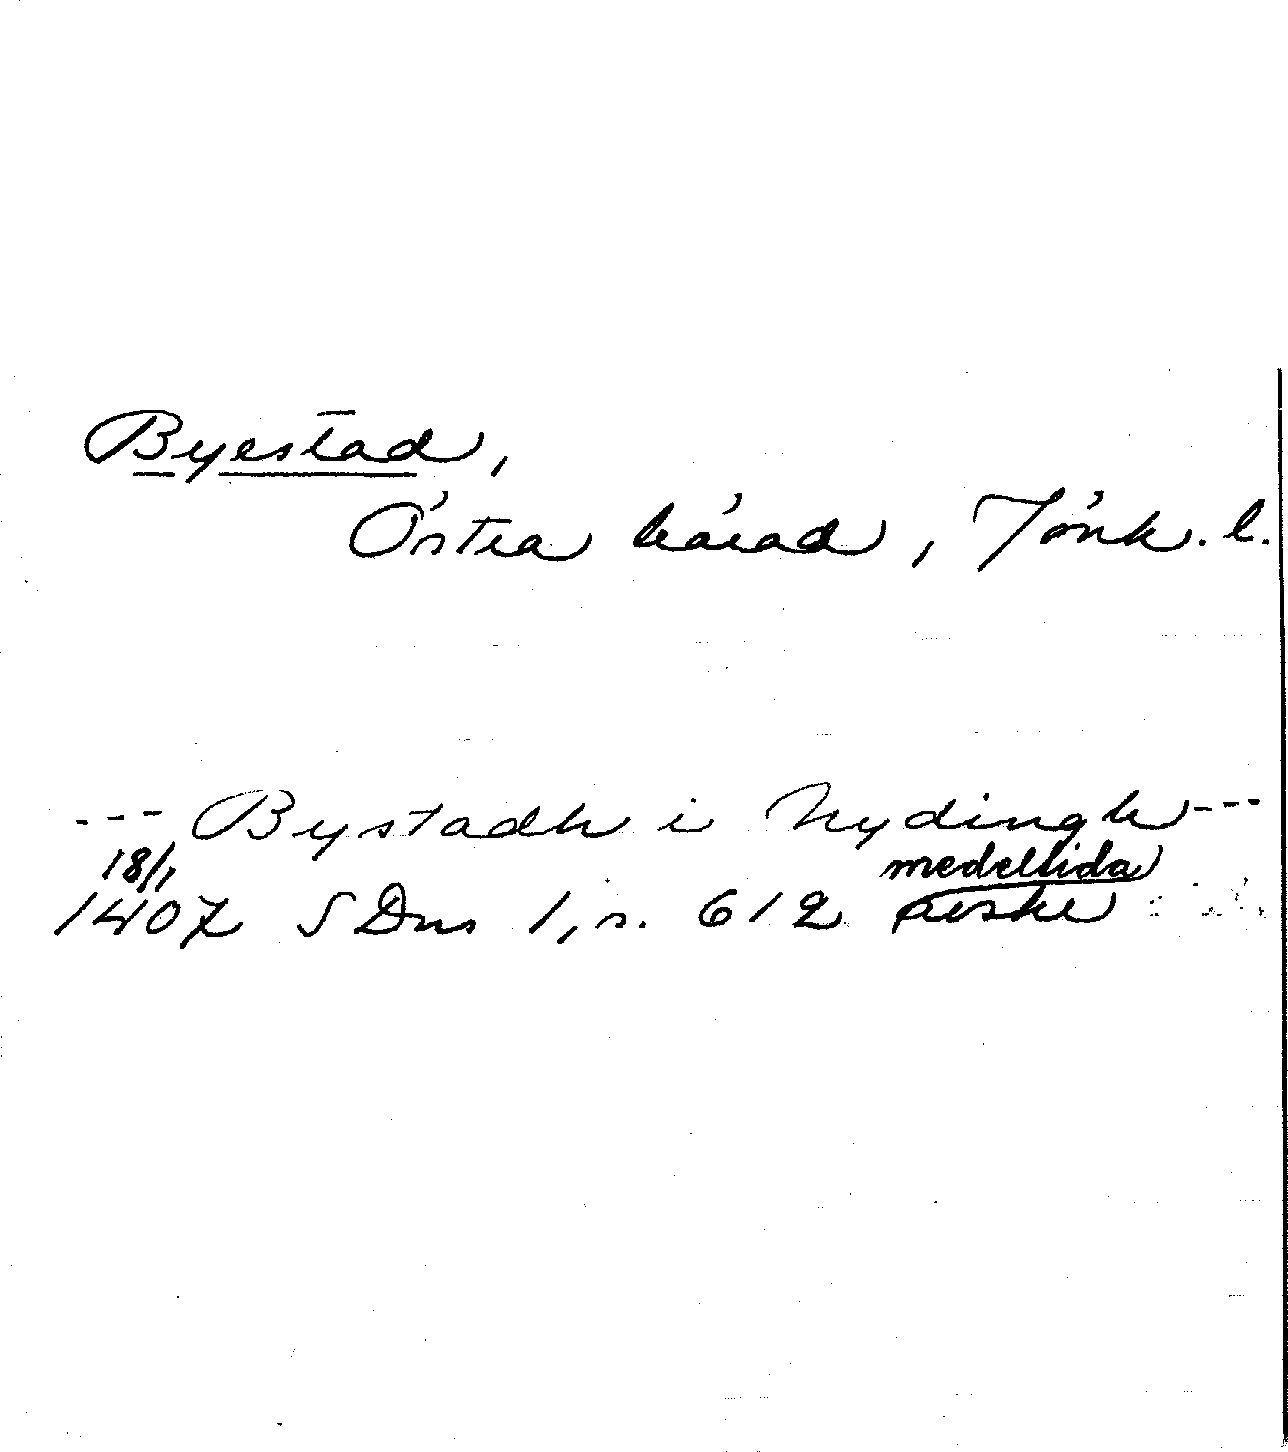 Byestad,
Östra härad, Jönk. l.
--- Bystadh i Nydingh ---
18/1 medeltida
1407 SDns 1, s. 612 avskr